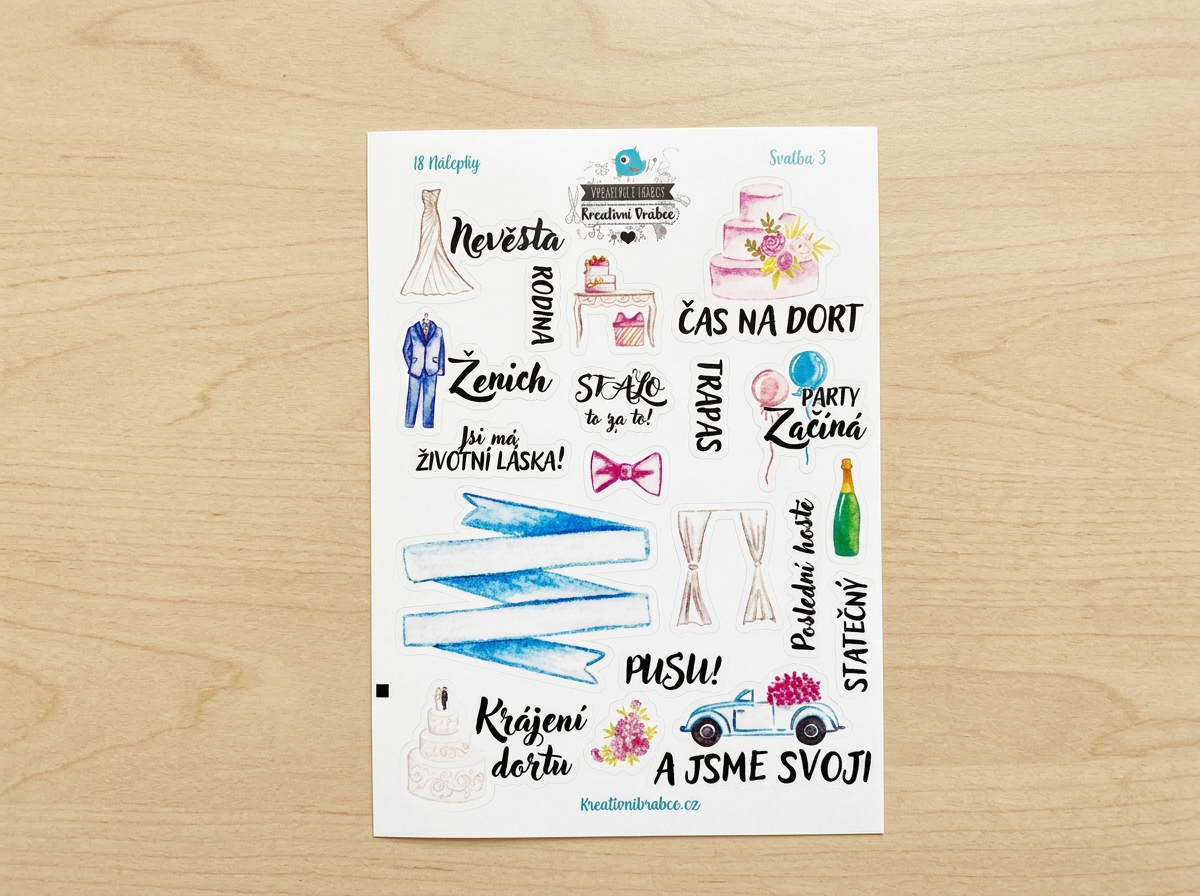 18 Nálepky
Svatba 3
Kreativní Vrabce
Nevěsta
RODINA
ČAS NA DORT
Ženich
STÁLO
to za to!
TRAPAS
PARTY
Začíná
Jsi má
ŽIVOTNÍ LÁSKA!
Poslední hosté
STATEČNÝ
PUSU!
Krájení
dortu
A JSME SVOJI
Kreativnibrabce.cz